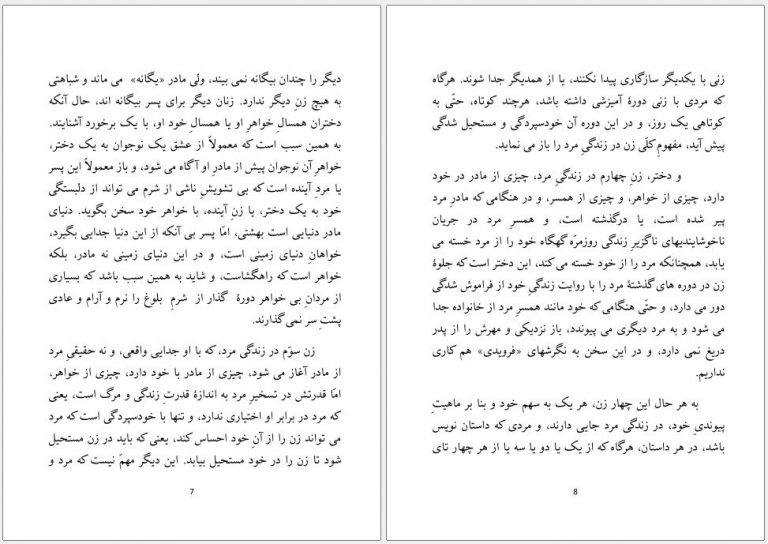 دیگر را چندان بیگانه نمی بیند، ولی مادر «یگانه» می ماند و شباهتی
به هیچ زنِ دیگر ندارد. زنان دیگر برای پسر بیگانه اند، حال آنکه
دخترانِ همسالِ خواهرِ او یا همسالِ خود او، با یک برخورد آشنایند.
به همین سبب است که معمولاً از عشق یک نوجوان به یک دختر،
خواهرِ آن نوجوان پیش از مادرِ او آگاه می شود، و باز معمولاً این پسر
یا مردِ آینده است که بی تشویشِ ناشی از شرم می تواند از دلبستگی
خود به یک دختر، یا زنِ آینده، با خواهر خود سخن بگوید. دنیای
مادر دنیایی است بهشتی، امّا پسر بی آنکه از این دنیا جدایی بگیرد،
خواهانِ دنیای زمینی است، و در این دنیای زمینی نه مادر، بلکه
خواهر است که راهگشاست، و شاید به همین سبب باشد که بسیاری
از مردانِ بی خواهر دورۀ گذار از شرمِ بلوغ را نرم و آرام و عادی
پشتِ سر نمی‌گذارند.
زن سوّم در زندگی مرد، که با او جدایی واقعی، و نه حقیقیِ مرد
از مادر آغاز می شود، چیزی از مادر با خود دارد، چیزی از خواهر،
امّا قدرتش در تسخیرِ مرد به اندازۀ قدرتِ زندگی و مرگ است، یعنی
که مرد در برابر او اختیاری ندارد، و تنها با خودسپردگی است که مرد
می تواند زن را از آنِ خود احساس کند، یعنی که باید در زن مستحیل
شود تا زن را در خود مستحیل بیابد. این دیگر مهمّ نیست که مرد و
7
زنی با یکدیگر سازگاری پیدا نکنند، یا از همدیگر جدا شوند. هرگاه
که مردی با زنی دورۀ آمیزشی داشته باشد، هرچند کوتاه، حتّی به
کوتاهی یک روز، و در این دوره آن خودسپردگی و مستحیل شدگی
پیش آید، مفهومِ کلّی زن در زندگیِ مرد را باز می نماید.
و دختر، زنِ چهارم در زندگیِ مرد، چیزی از مادر در خود
دارد، چیزی از خواهر، و چیزی از همسر، و در هنگامی که مادرِ مرد
پیر شده است، یا درگذشته است، و همسرِ مرد در جریان
ناخوشایندیهای ناگزیرِ زندگی روزمرّه گهگاه خود را از مرد خسته می
یابد، همچنانکه مرد را از خود خسته می کند، این دختر است که جلوۀ
زن در دوره های گذشتۀ مرد را با روایت زندگیِ خود از فراموش شدگی
دور می دارد، و حتّی هنگامی که خود مانند همسرِ مرد از خانواده جدا
می شود و به مرد دیگری می پیوندد، باز نزدیکی و مهرش را از پدر
دریغ نمی دارد، و در این سخن به نگرشهای «فرویدی» هم کاری
نداریم.
به هر حال این چهار زن، هر یک به سهم خود و بنا بر ماهیتِ
پیوندیِ خود، در زندگی مرد جایی دارند، و مردی که داستان نویس
باشد، در هر داستان، هرگاه که از یک یا دو یا سه یا از هر چهار تای
8